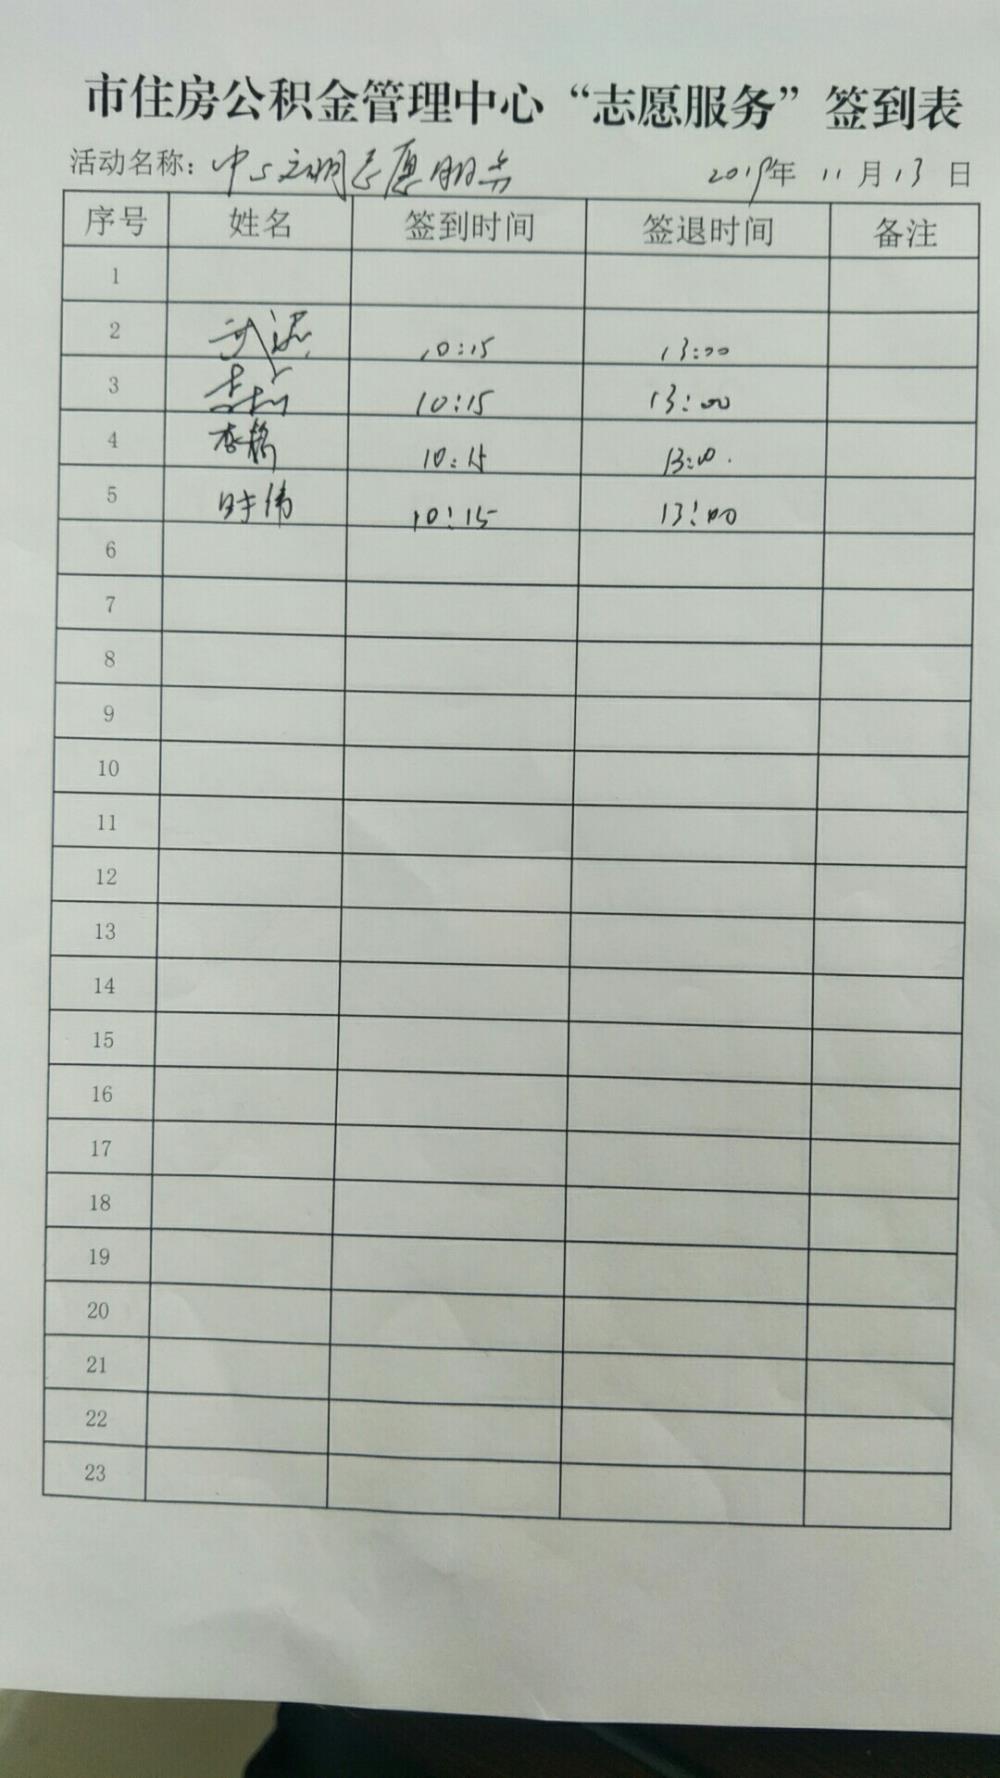 市住房公积金管理中心“志愿服务”签到表
活动名称：中心文明志愿服务 2019年 11月13日
序号 姓名 签到时间 签退时间 备注
1
2 10:15 13:00
3 10:15 13:00
4 李杨 10:15 13:00.
5 时伟 10:15 13:00
6
7
8
9
10
11
12
13
14
15
16
17
18
19
20
21
22
23